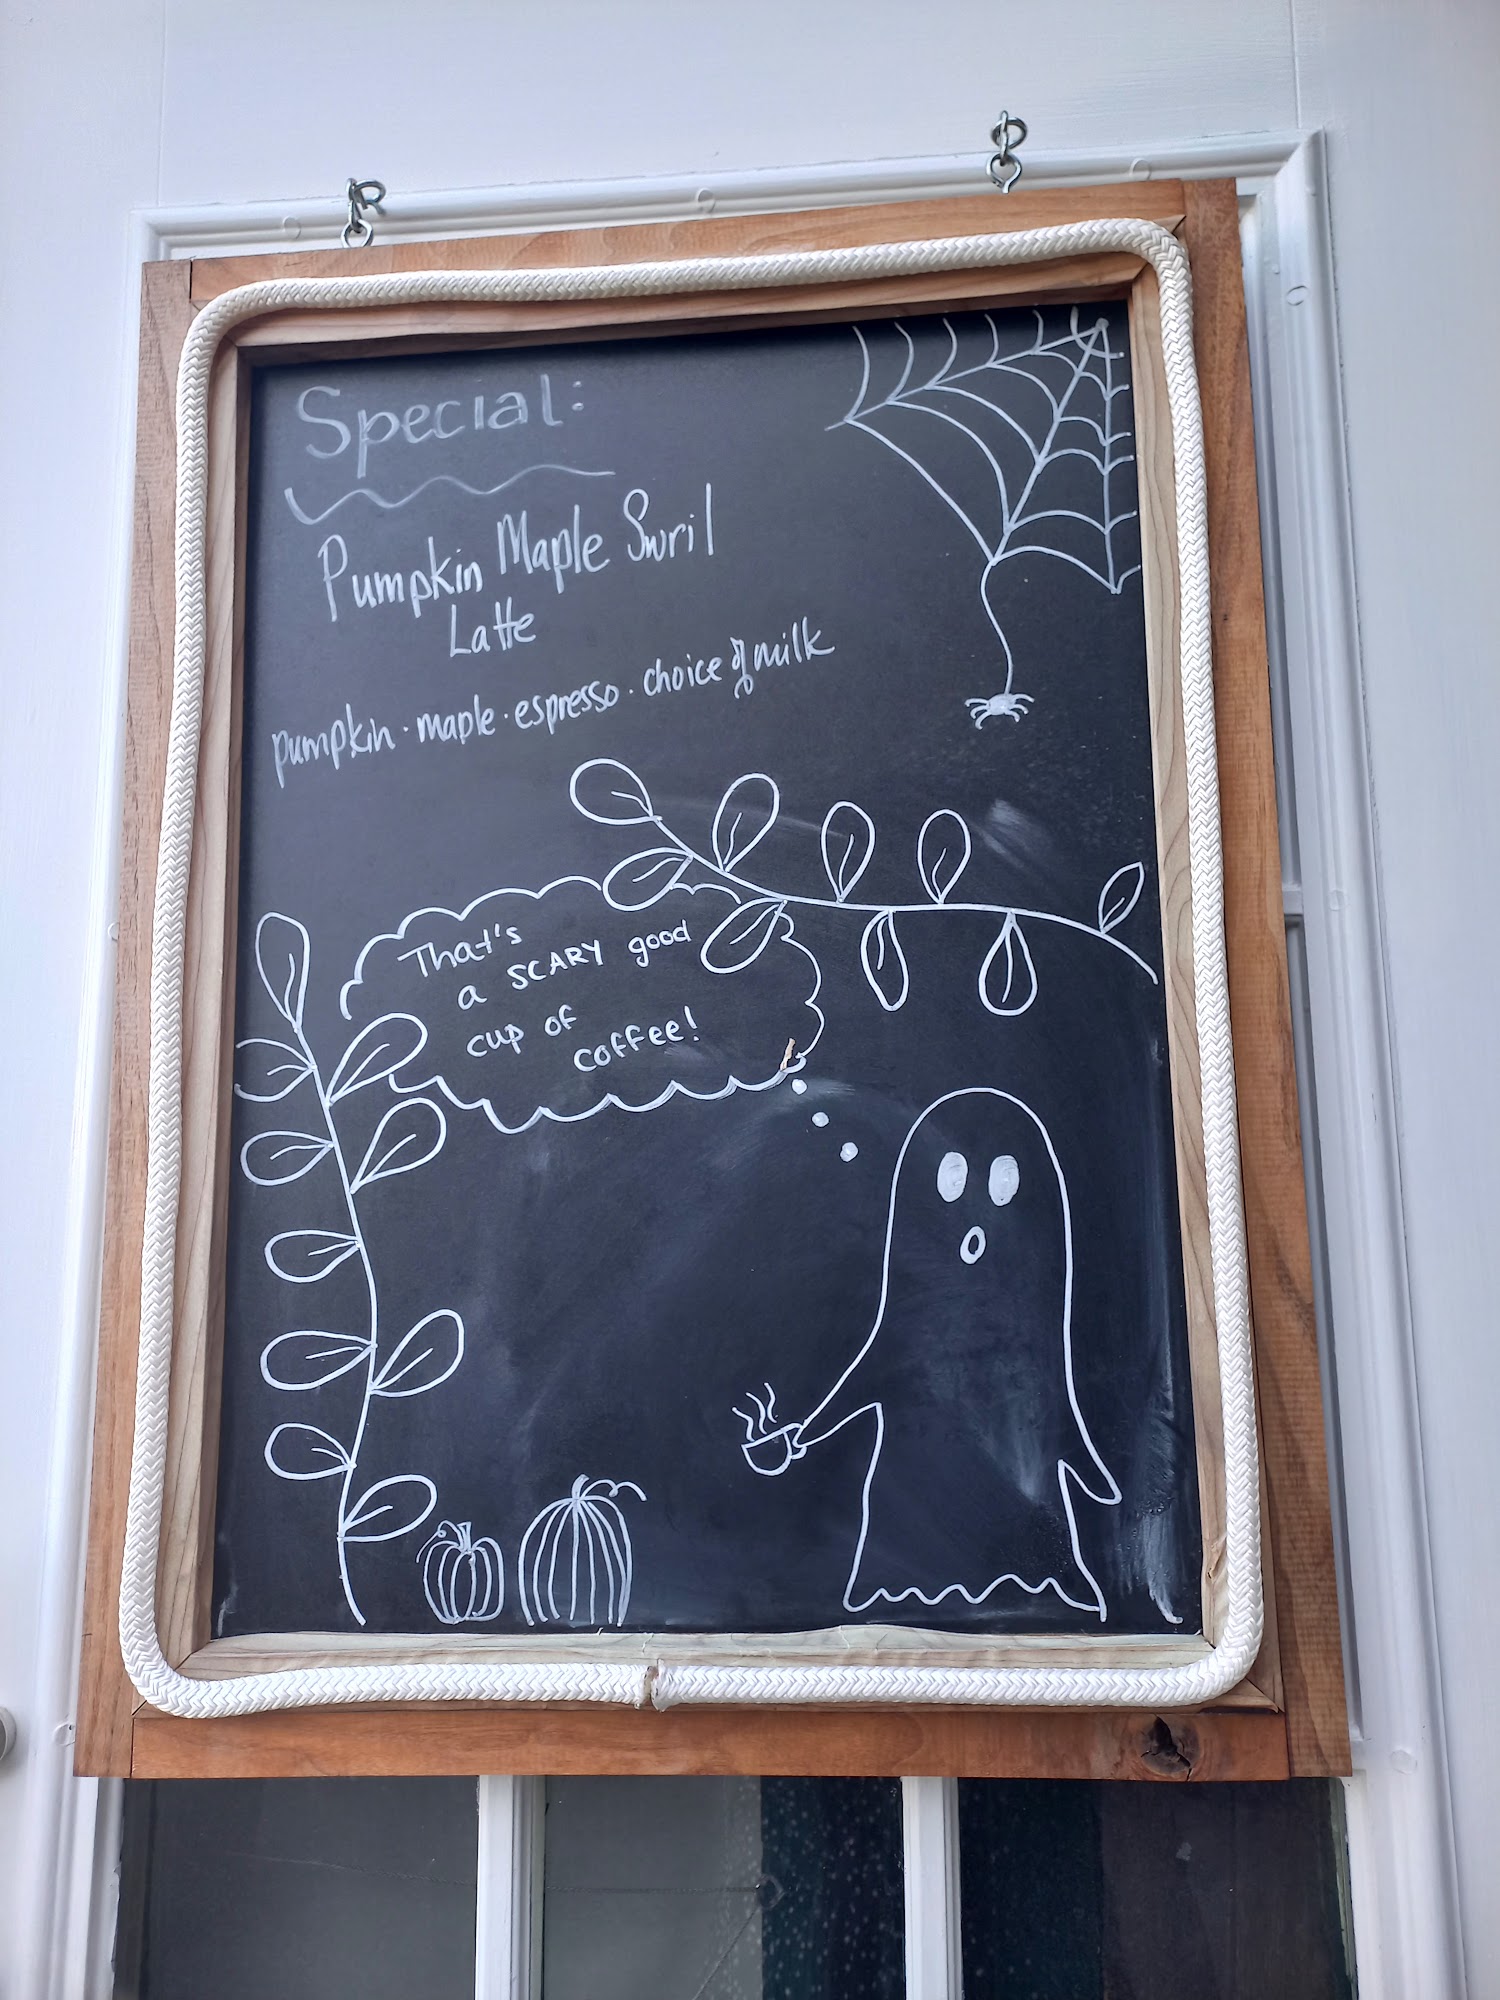 Special:
Pumpkin Maple Swril
Latte
pumpkin · maple · espresso · choice of milk
That's
a SCARY good
cup of
coffee!